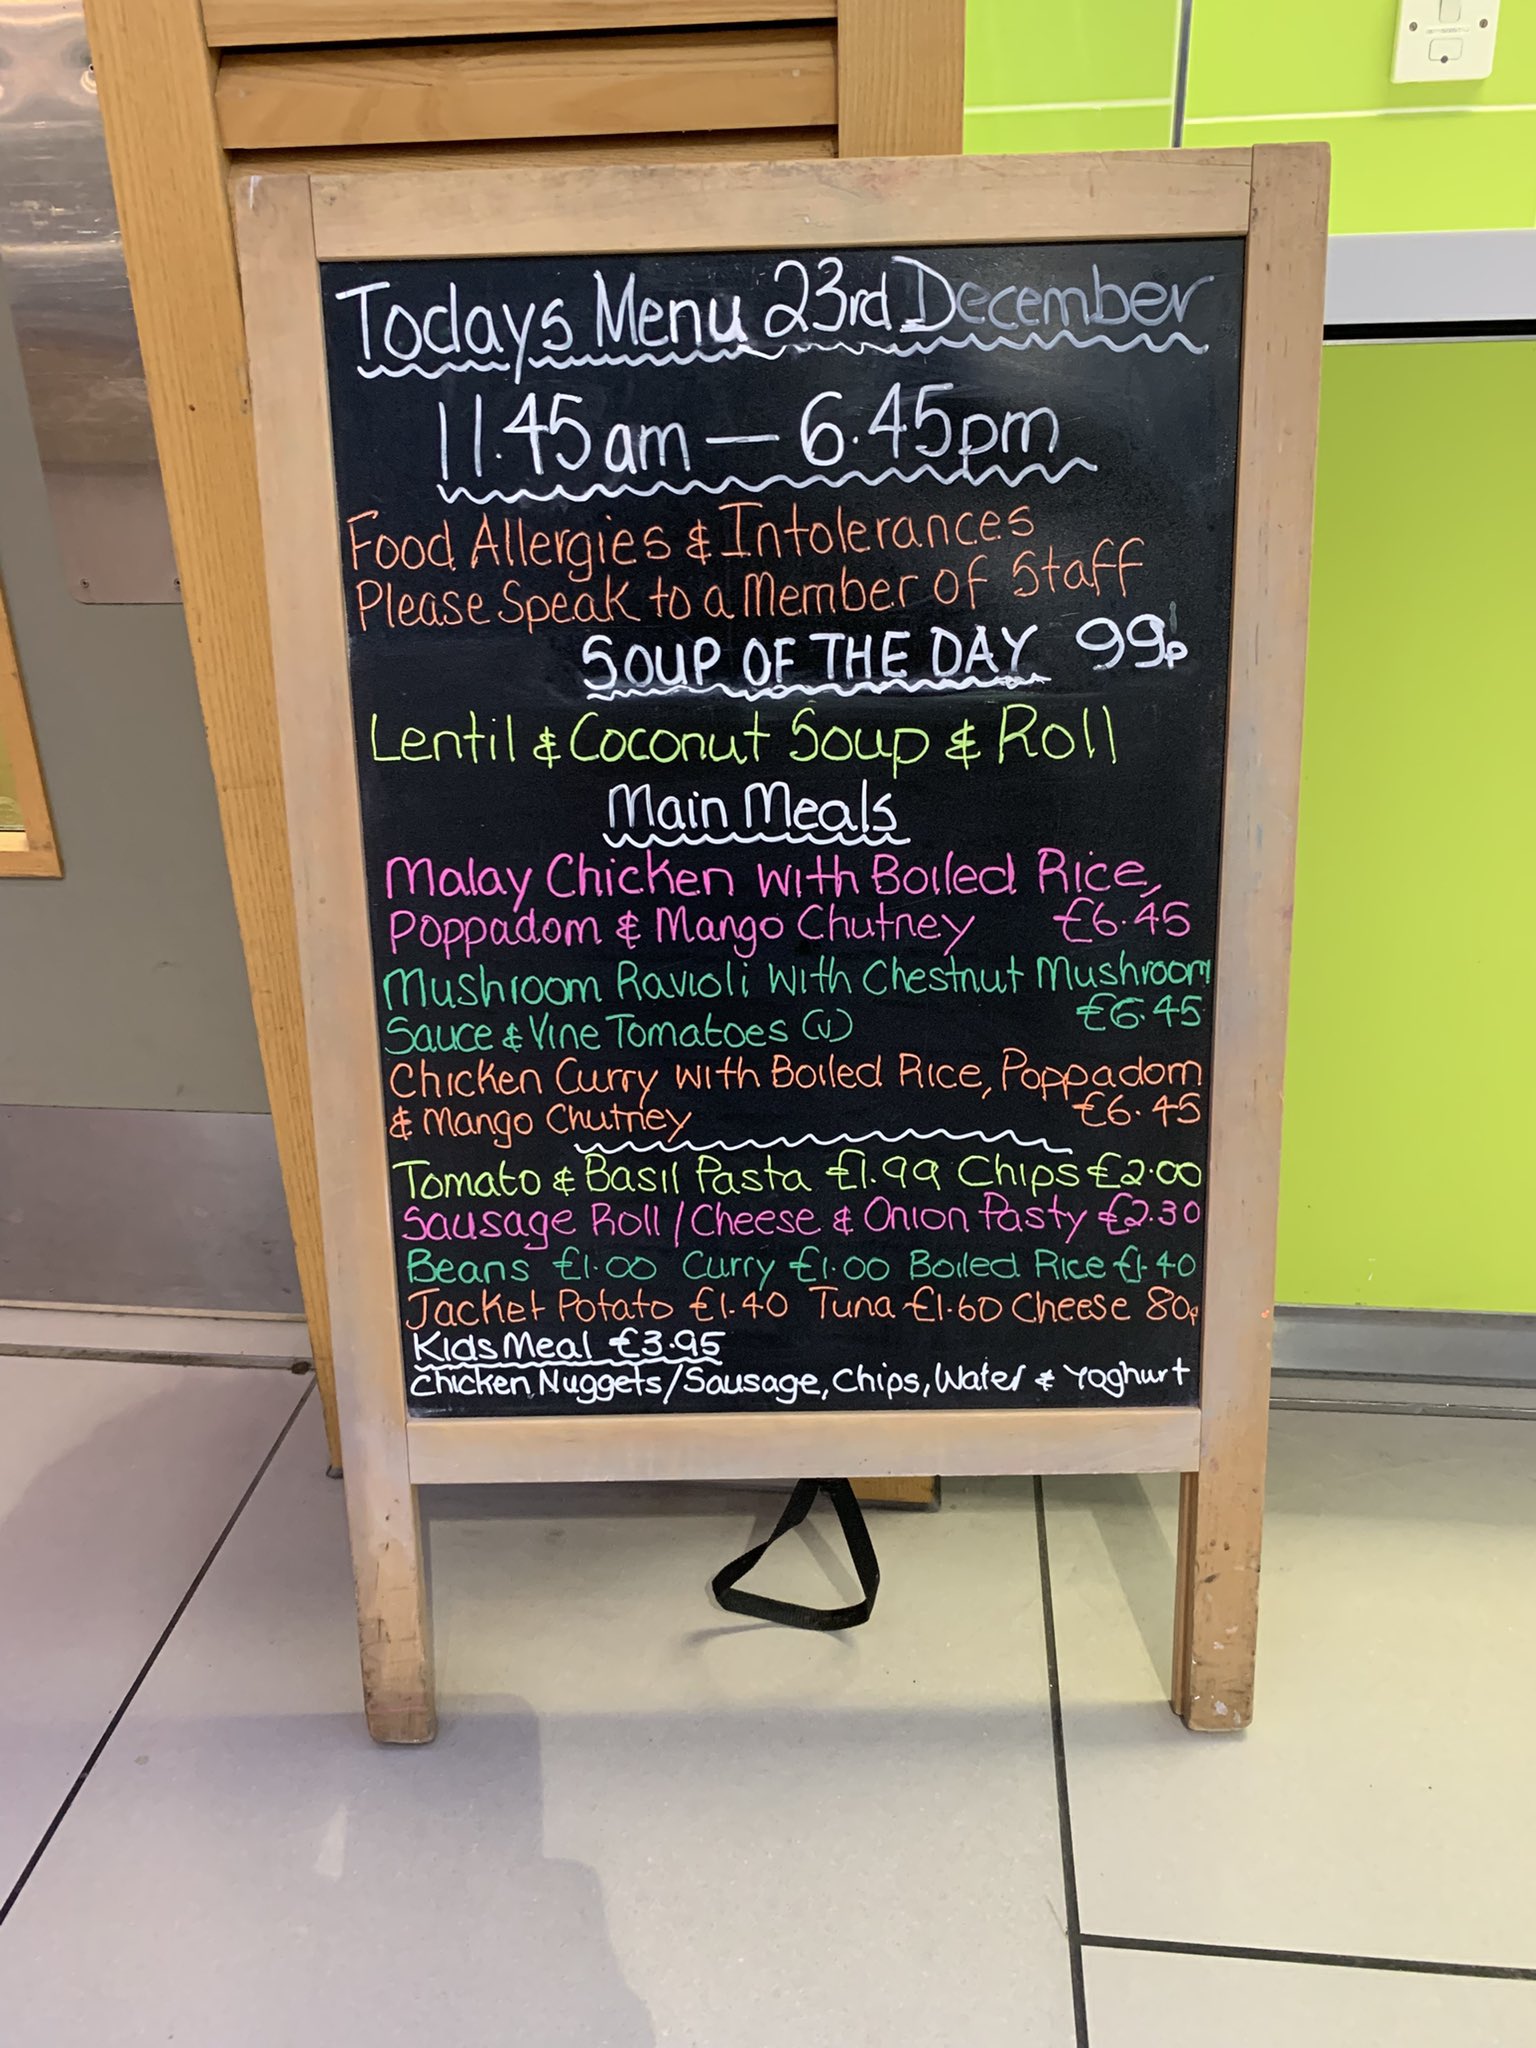 Todays Menu 23rd December
11.45am — 6.45pm
Food Allergies & Intolerances
Please Speak to a Member of Staff
SOUP OF THE DAY 99p
Lentil & Coconut Soup & Roll
Main Meals
Malay Chicken with Boiled Rice,
Poppadom & Mango Chutney £6.45
Mushroom Ravioli with Chestnut Mushroom
Sauce & Vine Tomatoes (v) £6.45
Chicken Curry with Boiled Rice, Poppadom
& Mango Chutney £6.45
Tomato & Basil Pasta £1.99 Chips £2.00
Sausage Roll/Cheese & Onion Pasty £2.30
Beans £1.00 Curry £1.00 Boiled Rice £1.40
Jacket Potato £1.40 Tuna £1.60 Cheese 80p
Kids Meal £3.95
Chicken Nuggets/Sausage, Chips, Water & Yoghurt